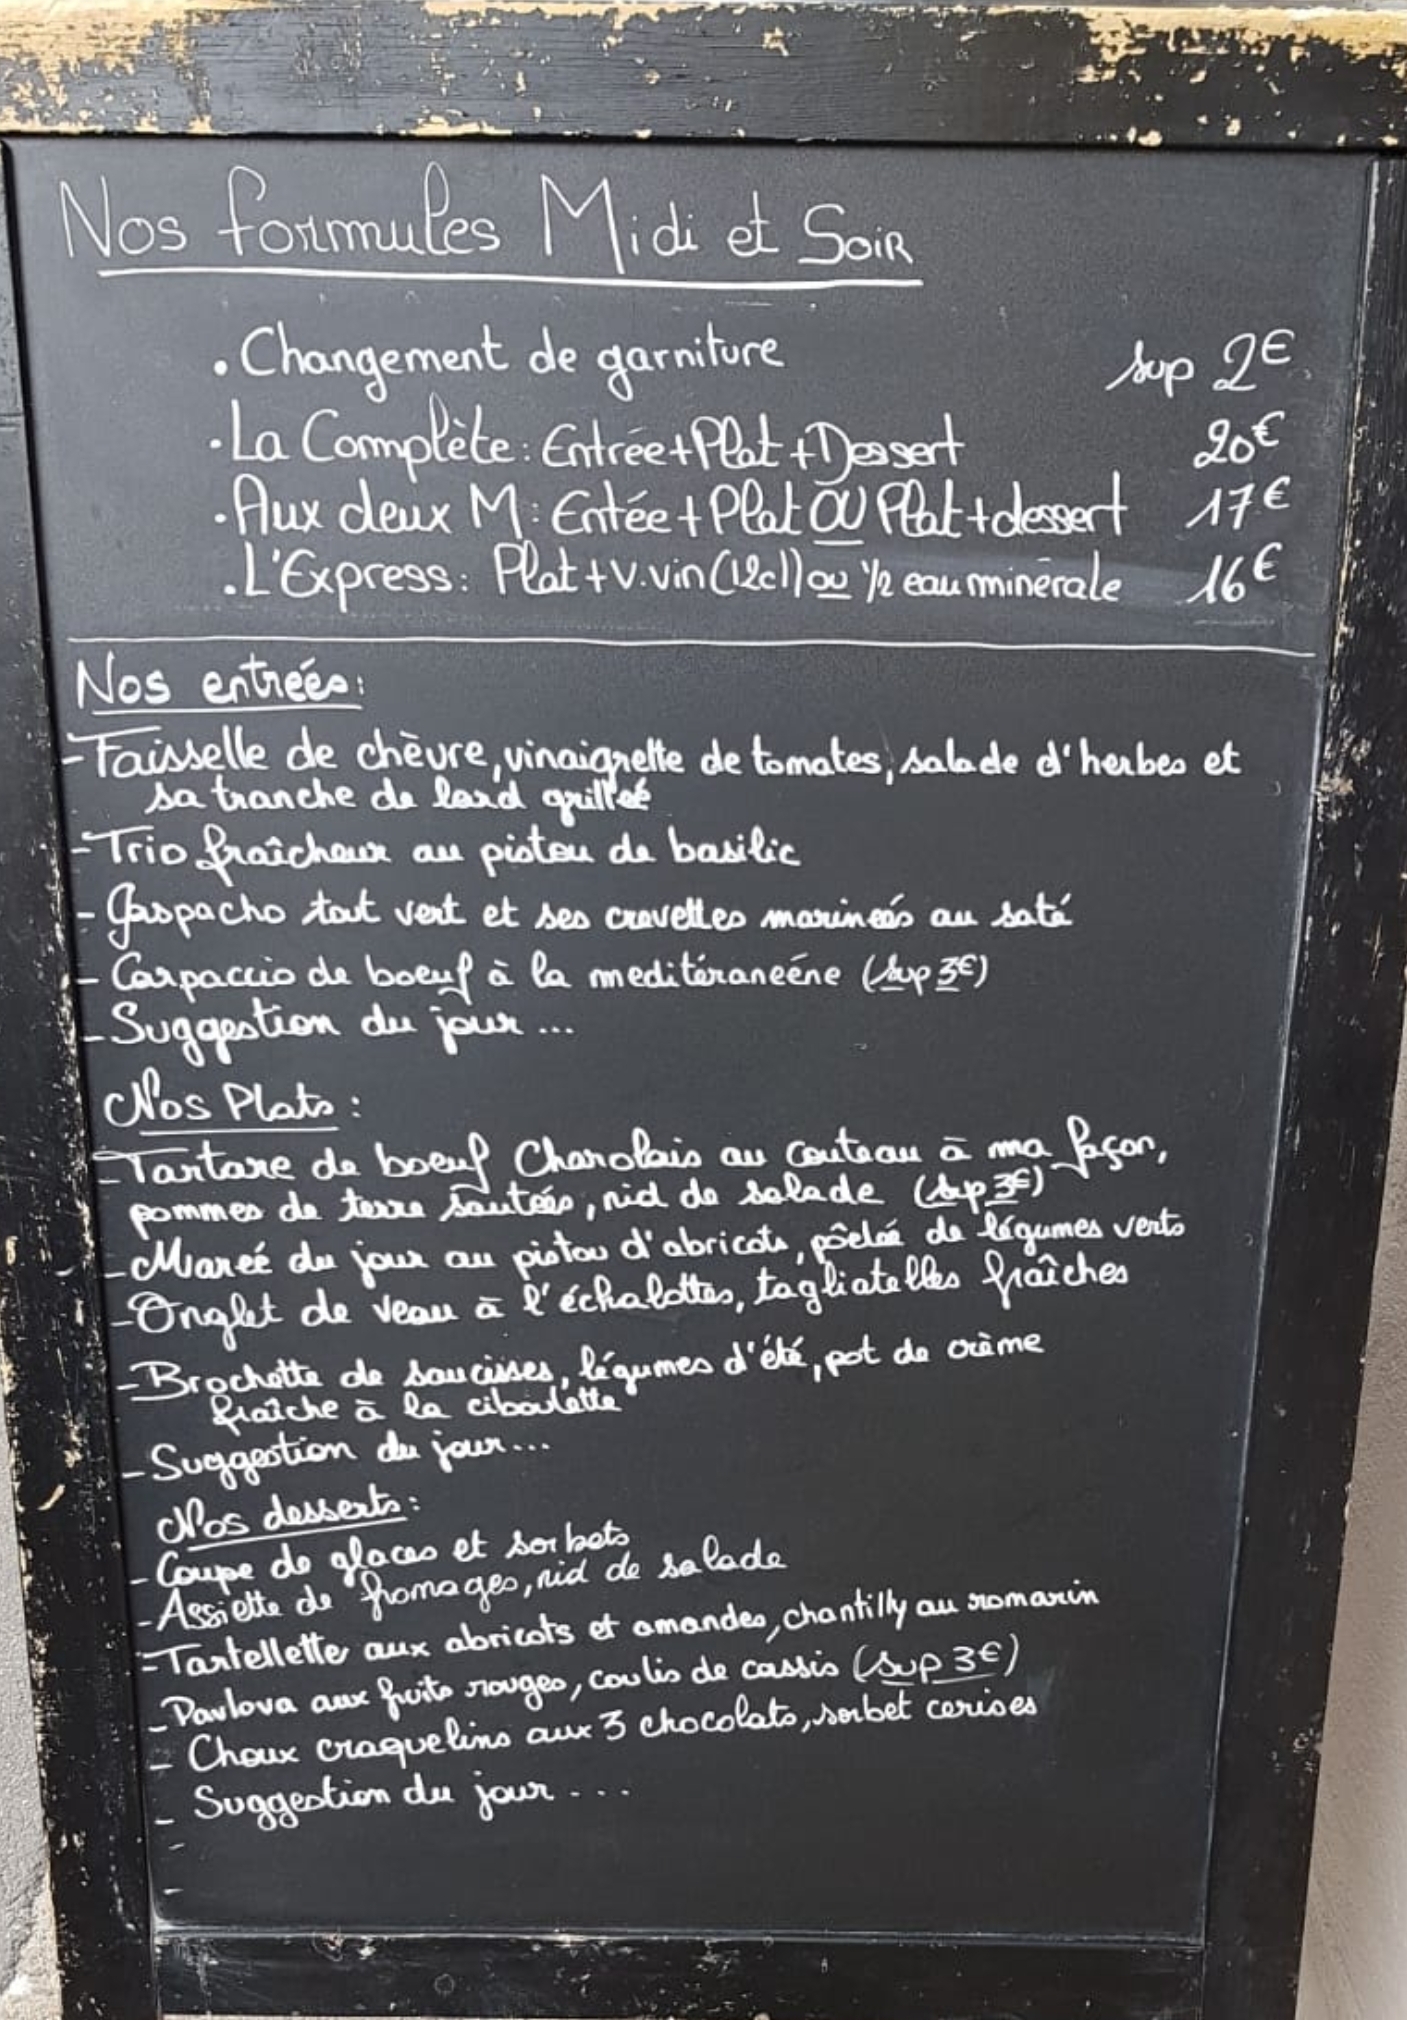 Nos formules Midi et Soir
. Changement de garniture sup 2€
. La Complète : Entrée+Plat+Dessert 20€
. Aux deux M : Entée+Plat OU Plat+dessert 17€
. L'Express : Plat+V.vin(12cl) ou 1/2 eau minérale 16€
Nos entreés :
- Faisselle de chèvre, vinaigrette de tomates, salade d'herbes et
sa tranche de lard grilleé
- Trio fraîcheur au pistou de basilic
- Gaspacho tout vert et ses crevettes marineés au saté
- Carpaccio de boeuf à la meditéraneéne (sup 3€)
- Suggestion du jour ...
Nos Plats :
- Tartare de boeuf Charolais au couteau à ma façon,
pommes de terre sauteés, nid de salade (sup 3€)
- Mareé du jour au pistou d'abricots, pôeleé de légumes verts
- Onglet de veau à l'échalottes, tagliatelles fraîches
- Brochette de saucisses, légumes d'été, pot de crème
fraîche à la ciboulette
- Suggestion du jour ...
Nos desserts :
- Coupe de glaces et sorbets
- Assiette de fromages, nid de salade
- Tartellette aux abricots et amandes, chantilly au romarin
- Pavlova aux fruits rouges, coulis de cassis (sup 3€)
- Choux craquelins aux 3 chocolats, sorbet cerises
- Suggestion du jour ...
-
-